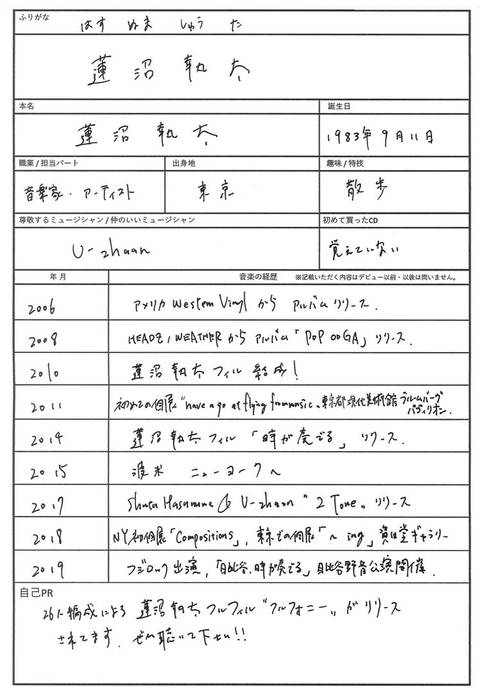 ふりがな
はす ぬま しゅう た
蓮沼 執太
本名 誕生日
蓮沼 執太 1983年9月11日
職業/担当パート 出身地 趣味/特技
音楽家・アーティスト 東京 散歩
尊敬するミュージシャン/仲のいいミュージシャン 初めて買ったCD
U-zhaan 覚えていない
年月 音楽の経歴 ※記載いただく内容はデビュー以前・以後は問いません。
2006 アメリカ Western Vinyl から アルバム リリース.
2008 HEADZ / WEATHER から アルバム「POP OOGA」リリース.
2010 蓮沼執太フィル 結成!
2011 初めての個展 "have a go at flying from music 〃 東京都現代美術館 ブルームバーグ
パヴィリオン.
2014 蓮沼執太フィル「時が奏でる」リリース.
2015 渡米 ニューヨークへ
2017 Shuta Hasunuma & U-zhaan "2 Tone 〃 リリース
2018 NY初個展「Compositions」, 東京での個展「~ ing」資生堂ギャラリー
2019 フジロック出演,「日比谷,時が奏でる」日比谷野音公演開催.
自己PR
26人編成による 蓮沼執太フルフィル "フルフォニー〃 がリリース
されてます. ぜひ聴いて下さい!!